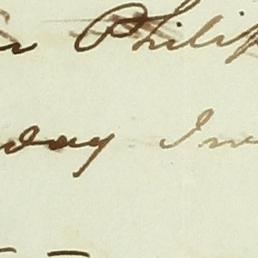 Philip
day I w